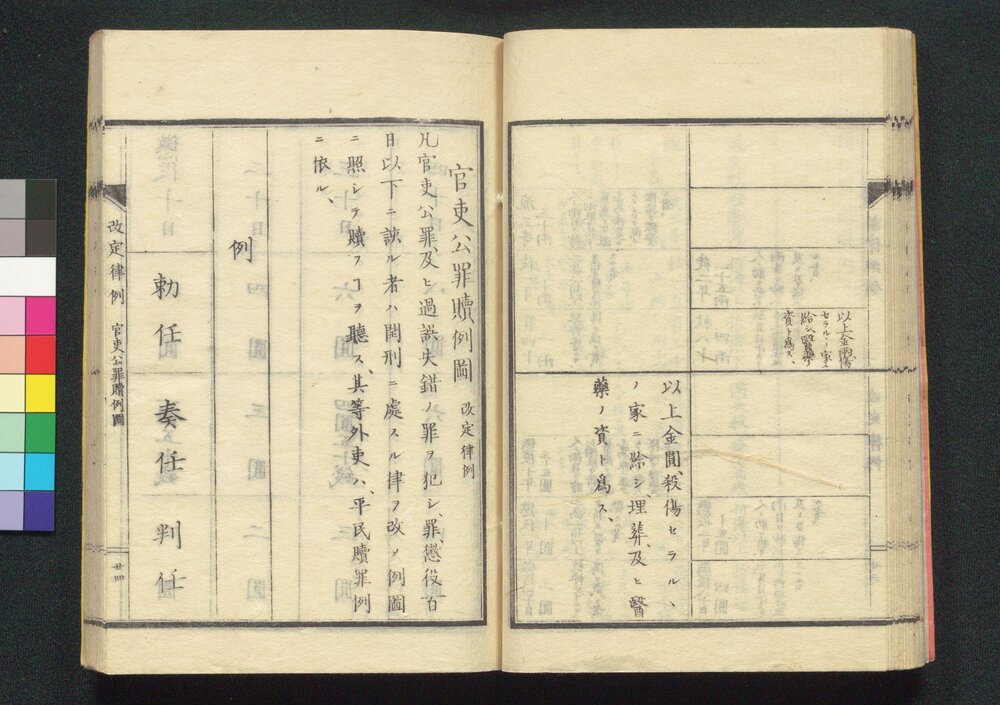 以上金兩、殺傷
セラルヽノ家ニ
給シ、醫藥ノ
資ト爲ス、
以上金圓、殺傷セラルヽ
ノ家ニ給シ、埋葬、及ヒ醫
藥ノ資ト爲ス、
官吏公罪贖例圖 改定律例
凡官吏公罪、及ヒ過誤失錯ノ罪ヲ犯シ、罪懲役百
日以下ニ該ル者ハ閏刑ニ處スル律ヲ改メ例圖
ニ照シテ贖フヿヲ聽ス、其等外吏ハ、平民贖罪例
ニ依ル、
例
勅任 奏任 判任
改定律例 官吏公罪贖例圖 廿四